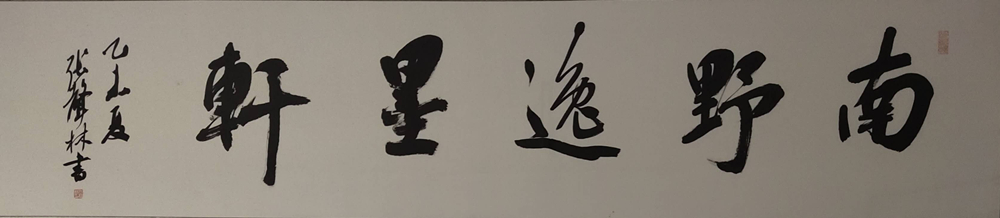 南野逸墨軒
乙未夏
张林書